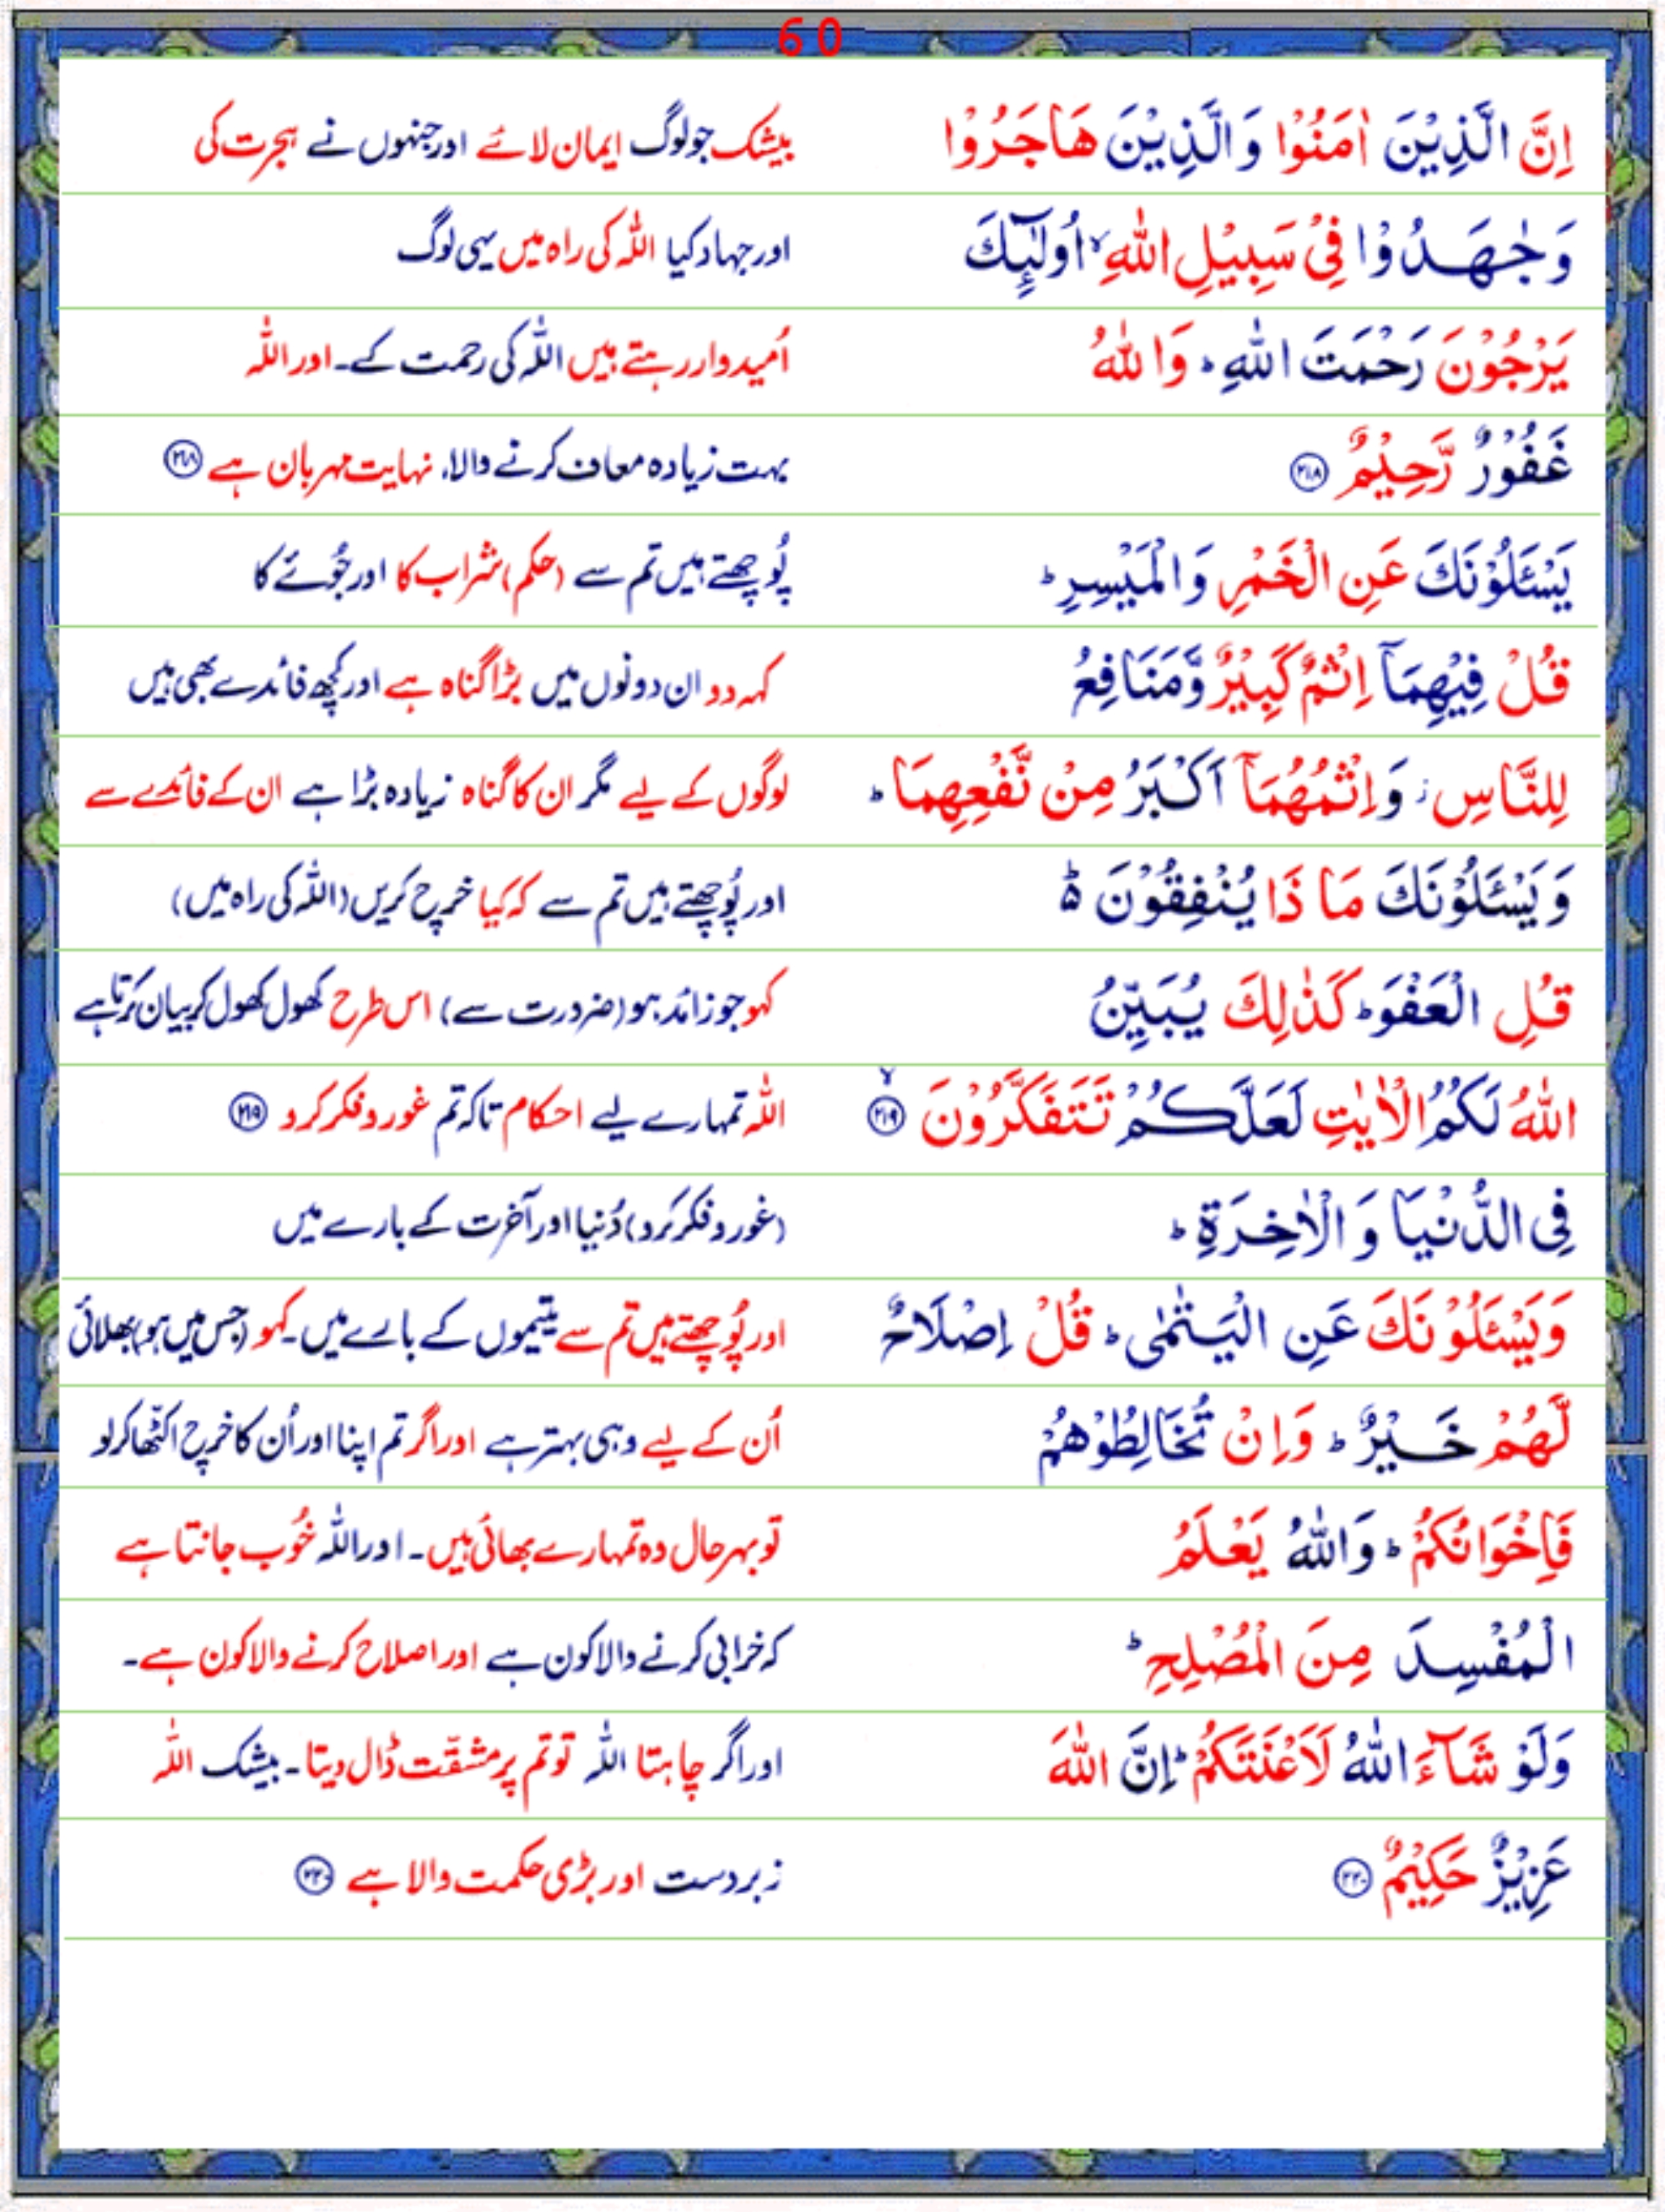 60
اِنَّ الَّذِيْنَ اٰمَنُوْا وَالَّذِيْنَ هَاجَرُوْا بیشک جو لوگ ایمان لائے اور جنہوں نے ہجرت کی
وَجٰهَدُوْا فِيْ سَبِيْلِ اللّٰهِ ۙ اُولٰٓئِكَ اور جہاد کیا اللہ کی راہ میں یہی لوگ
يَرْجُوْنَ رَحْمَتَ اللّٰهِ ؕ وَاللّٰهُ اُمیدوار رہتے ہیں اللہ کی رحمت کے۔ اور اللہ
غَفُوْرٌ رَّحِيْمٌ ﴿۲۱۸﴾ بہت زیادہ معاف کرنے والا، نہایت مہربان ہے ﴿۲۱۸﴾
يَسْئَلُوْنَكَ عَنِ الْخَمْرِ وَالْمَيْسِرِ ؕ پُوچھتے ہیں تم سے (حکم) شراب کا اور جُوئے کا
قُلْ فِيْهِمَآ اِثْمٌ كَبِيْرٌ وَّمَنَافِعُ کہہ دو ان دونوں میں بڑا گناہ ہے اور کچھ فائدے بھی ہیں
لِلنَّاسِ ؗ وَاِثْمُهُمَآ اَكْبَرُ مِنْ نَّفْعِهِمَا ؕ لوگوں کے لیے مگر ان کا گناہ زیادہ بڑا ہے ان کے فائدے سے
وَيَسْئَلُوْنَكَ مَا ذَا يُنْفِقُوْنَ ؕ۬ اور پُوچھتے ہیں تم سے کہ کیا خرچ کریں (اللہ کی راہ میں)
قُلِ الْعَفْوَ ؕ كَذٰلِكَ يُبَيِّنُ کہو جو زائد ہو (ضرورت سے) اس طرح کھول کھول کر بیان کرتا ہے
اللّٰهُ لَكُمُ الْاٰيٰتِ لَعَلَّكُمْ تَتَفَكَّرُوْنَ ﴿۲۱۹﴾ ۙ اللہ تمہارے لیے احکام تاکہ تم غور و فکر کرو ﴿۲۱۹﴾
فِي الدُّنْيَا وَ الْاٰخِرَةِ ؕ (غور و فکر کرو) دُنیا اور آخرت کے بارے میں
وَيَسْئَلُوْنَكَ عَنِ الْيَتٰمٰى ؕ قُلْ اِصْلَاحٌ اور پُوچھتے ہیں تم سے یتیموں کے بارے میں۔ کہو (جس میں ہو) بھلائی
لَّهُمْ خَيْرٌ ؕ وَاِنْ تُخَالِطُوْهُمْ اُن کے لیے وہی بہتر ہے اور اگر تم اپنا اور اُن کا خرچ اکٹّھا کر لو
فَاِخْوَانُكُمْ ؕ وَاللّٰهُ يَعْلَمُ تو بہر حال وہ تمہارے بھائی ہیں۔ اور اللہ خُوب جانتا ہے
الْمُفْسِدَ مِنَ الْمُصْلِحِ ؕ کہ خرابی کرنے والا کون ہے اور اصلاح کرنے والا کون ہے۔
وَلَوْ شَآءَ اللّٰهُ لَاَعْنَتَكُمْ ؕ اِنَّ اللّٰهَ اور اگر چاہتا اللہ تو تم پر مشقّت ڈال دیتا۔ بیشک اللہ
عَزِيْزٌ حَكِيْمٌ ﴿۲۲۰﴾ زبردست اور بڑی حکمت والا ہے ﴿۲۲۰﴾